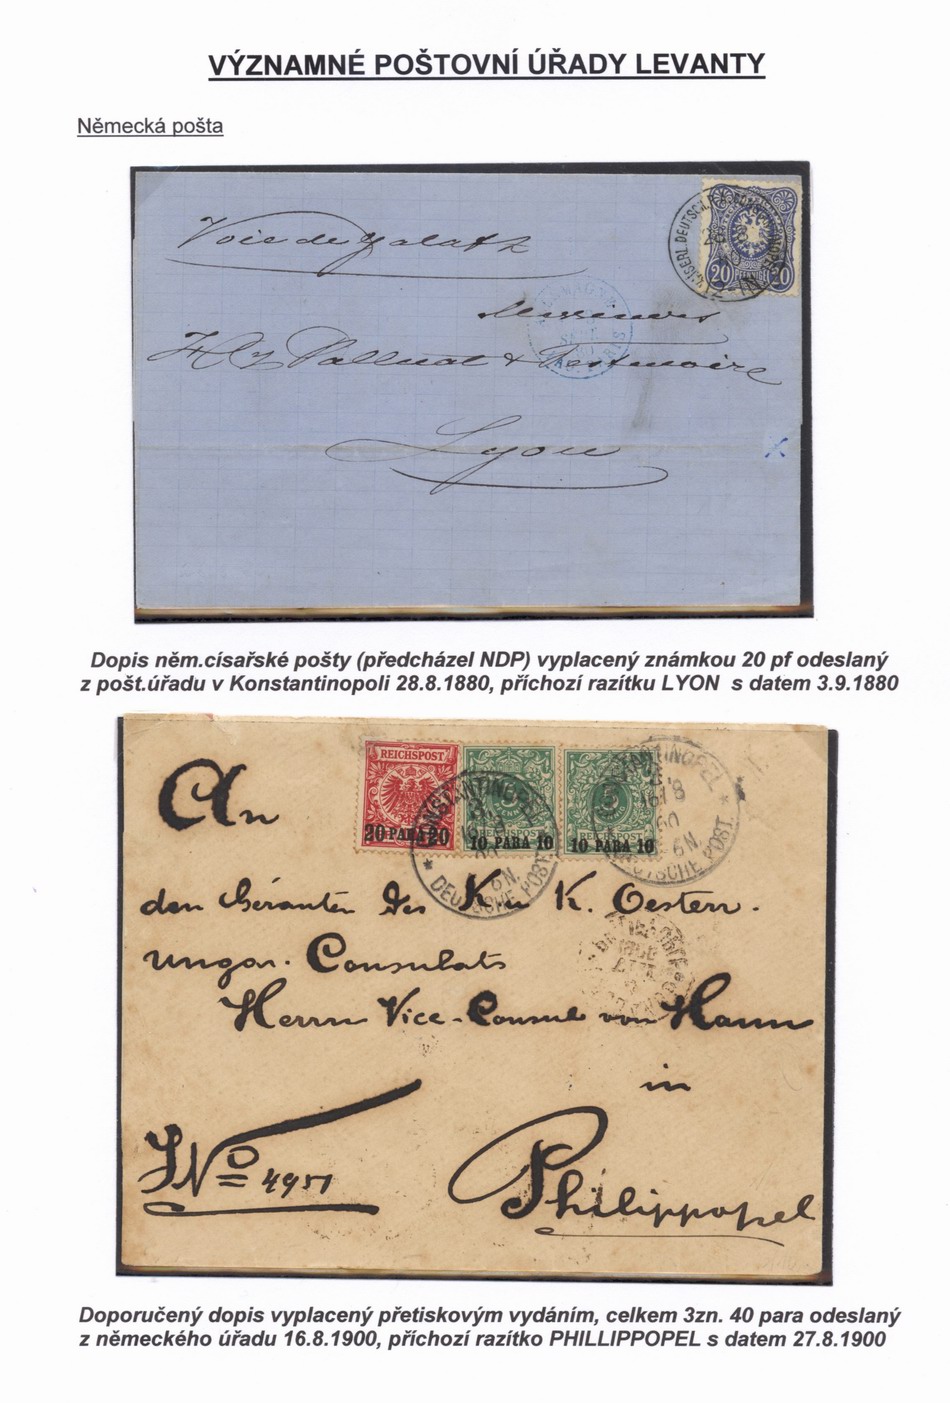 VÝZNAMNÉ POŠTOVNÍ ÚŘADY LEVANTY
Německá pošta
Voie de Galatz
20 PFENNIG 20
Messieurs
Lyon
Dopis něm.císařské pošty (předcházel NDP) vyplacený známkou 20 pf odeslaný
z pošt.úřadu v Konstantinopoli 28.8.1880, příchozí razítku LYON s datem 3.9.1880
REICHSPOST
20 PARA 20
REICHSPOST
10 PARA 10
REICHSPOST
10 PARA 10
CONSTANTINOPEL
DEUTSCHE POST
CONSTANTINOPEL
16/8
00
6N.
DEUTSCHE POST
An
den Geranten des K u K. Oesterr.
ungar. Consulats
Herrn Vice-Consul von Hann
in
No 4951
Philippopel
Doporučený dopis vyplacený přetiskovým vydáním, celkem 3zn. 40 para odeslaný
z německého úřadu 16.8.1900, příchozí razítko PHILLIPPOPEL s datem 27.8.1900